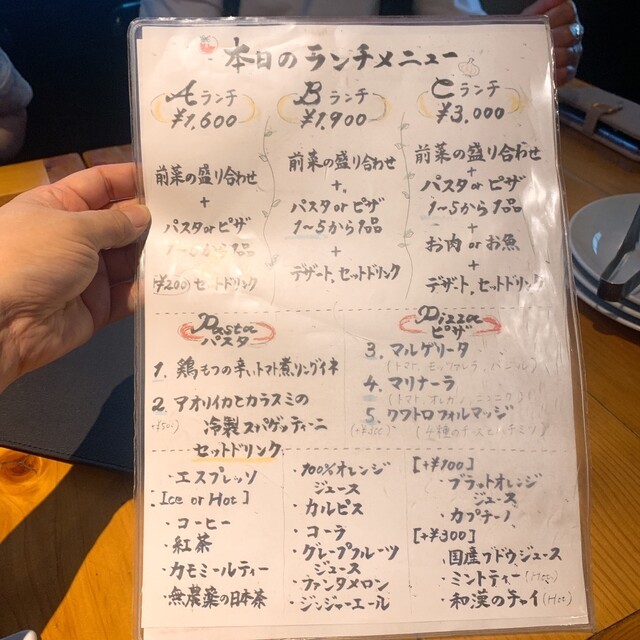 本日のランチメニュー
Aランチ
¥1,600
前菜の盛り合わせ
+
パスタorピザ
1~5から1品
+¥200のセットドリンク
Bランチ
¥1,900
前菜の盛り合わせ
+
パスタorピザ
1~5から1品
+
デザート、セットドリンク
Cランチ
¥3,000
前菜の盛り合わせ
+
パスタorピザ
1~5から1品
+
お肉orお魚
+
デザート、セットドリンク
Pasta
パスタ
1. 鶏もつの辛いトマト煮リングイネ
2. アオリイカとカラスミの
冷製スパゲッティーニ
Pizza
ピザ
3. マルゲリータ
(トマト、モッツァレラ、バジル)
4. マリナーラ
(トマト、オレガノ、ニンニク)
5. クワトロフォルマッジ
(4種のチーズとハチミツ)
セットドリンク
・エスプレッソ
[Ice or Hot]
・コーヒー
・紅茶
・カモミールティー
・無農薬の日本茶
・100%オレンジ
ジュース
・カルピス
・コーラ
・グレープフルーツ
ジュース
・ファンタメロン
・ジンジャーエール
[+¥100]
・ブラッドオレンジ
ジュース
・カプチーノ
[+¥300]
・国産ブドウジュース
・ミントティー(Hot)
・和漢のチャイ(Hot)